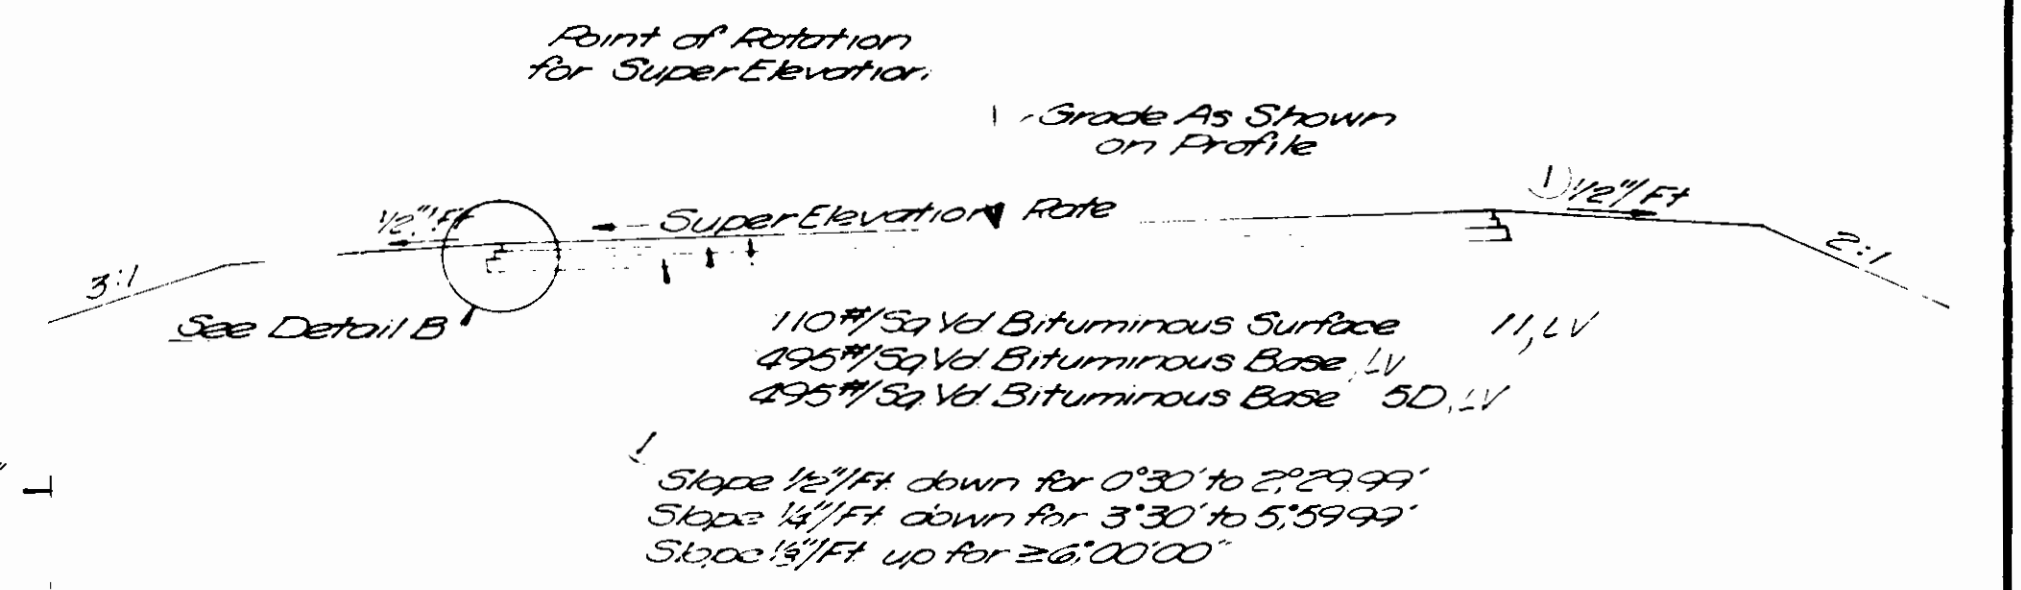 Point of Rotation
for SuperElevation
Grade As Shown
on Profile
1/2"/Ft
SuperElevation Rate
1 1/2"/Ft
3:1
2:1
See Detail B
110#/Sq Yd Bituminous Surface 11, LV
495#/Sq Yd Bituminous Base, LV
495#/Sq Yd Bituminous Base 5D, LV
1
Slope 1/2"/Ft down for 0°30' to 2°29.99'
Slope 1/4"/Ft down for 3°30' to 5°59.99'
Slope /Ft up for ≥6°00'00"